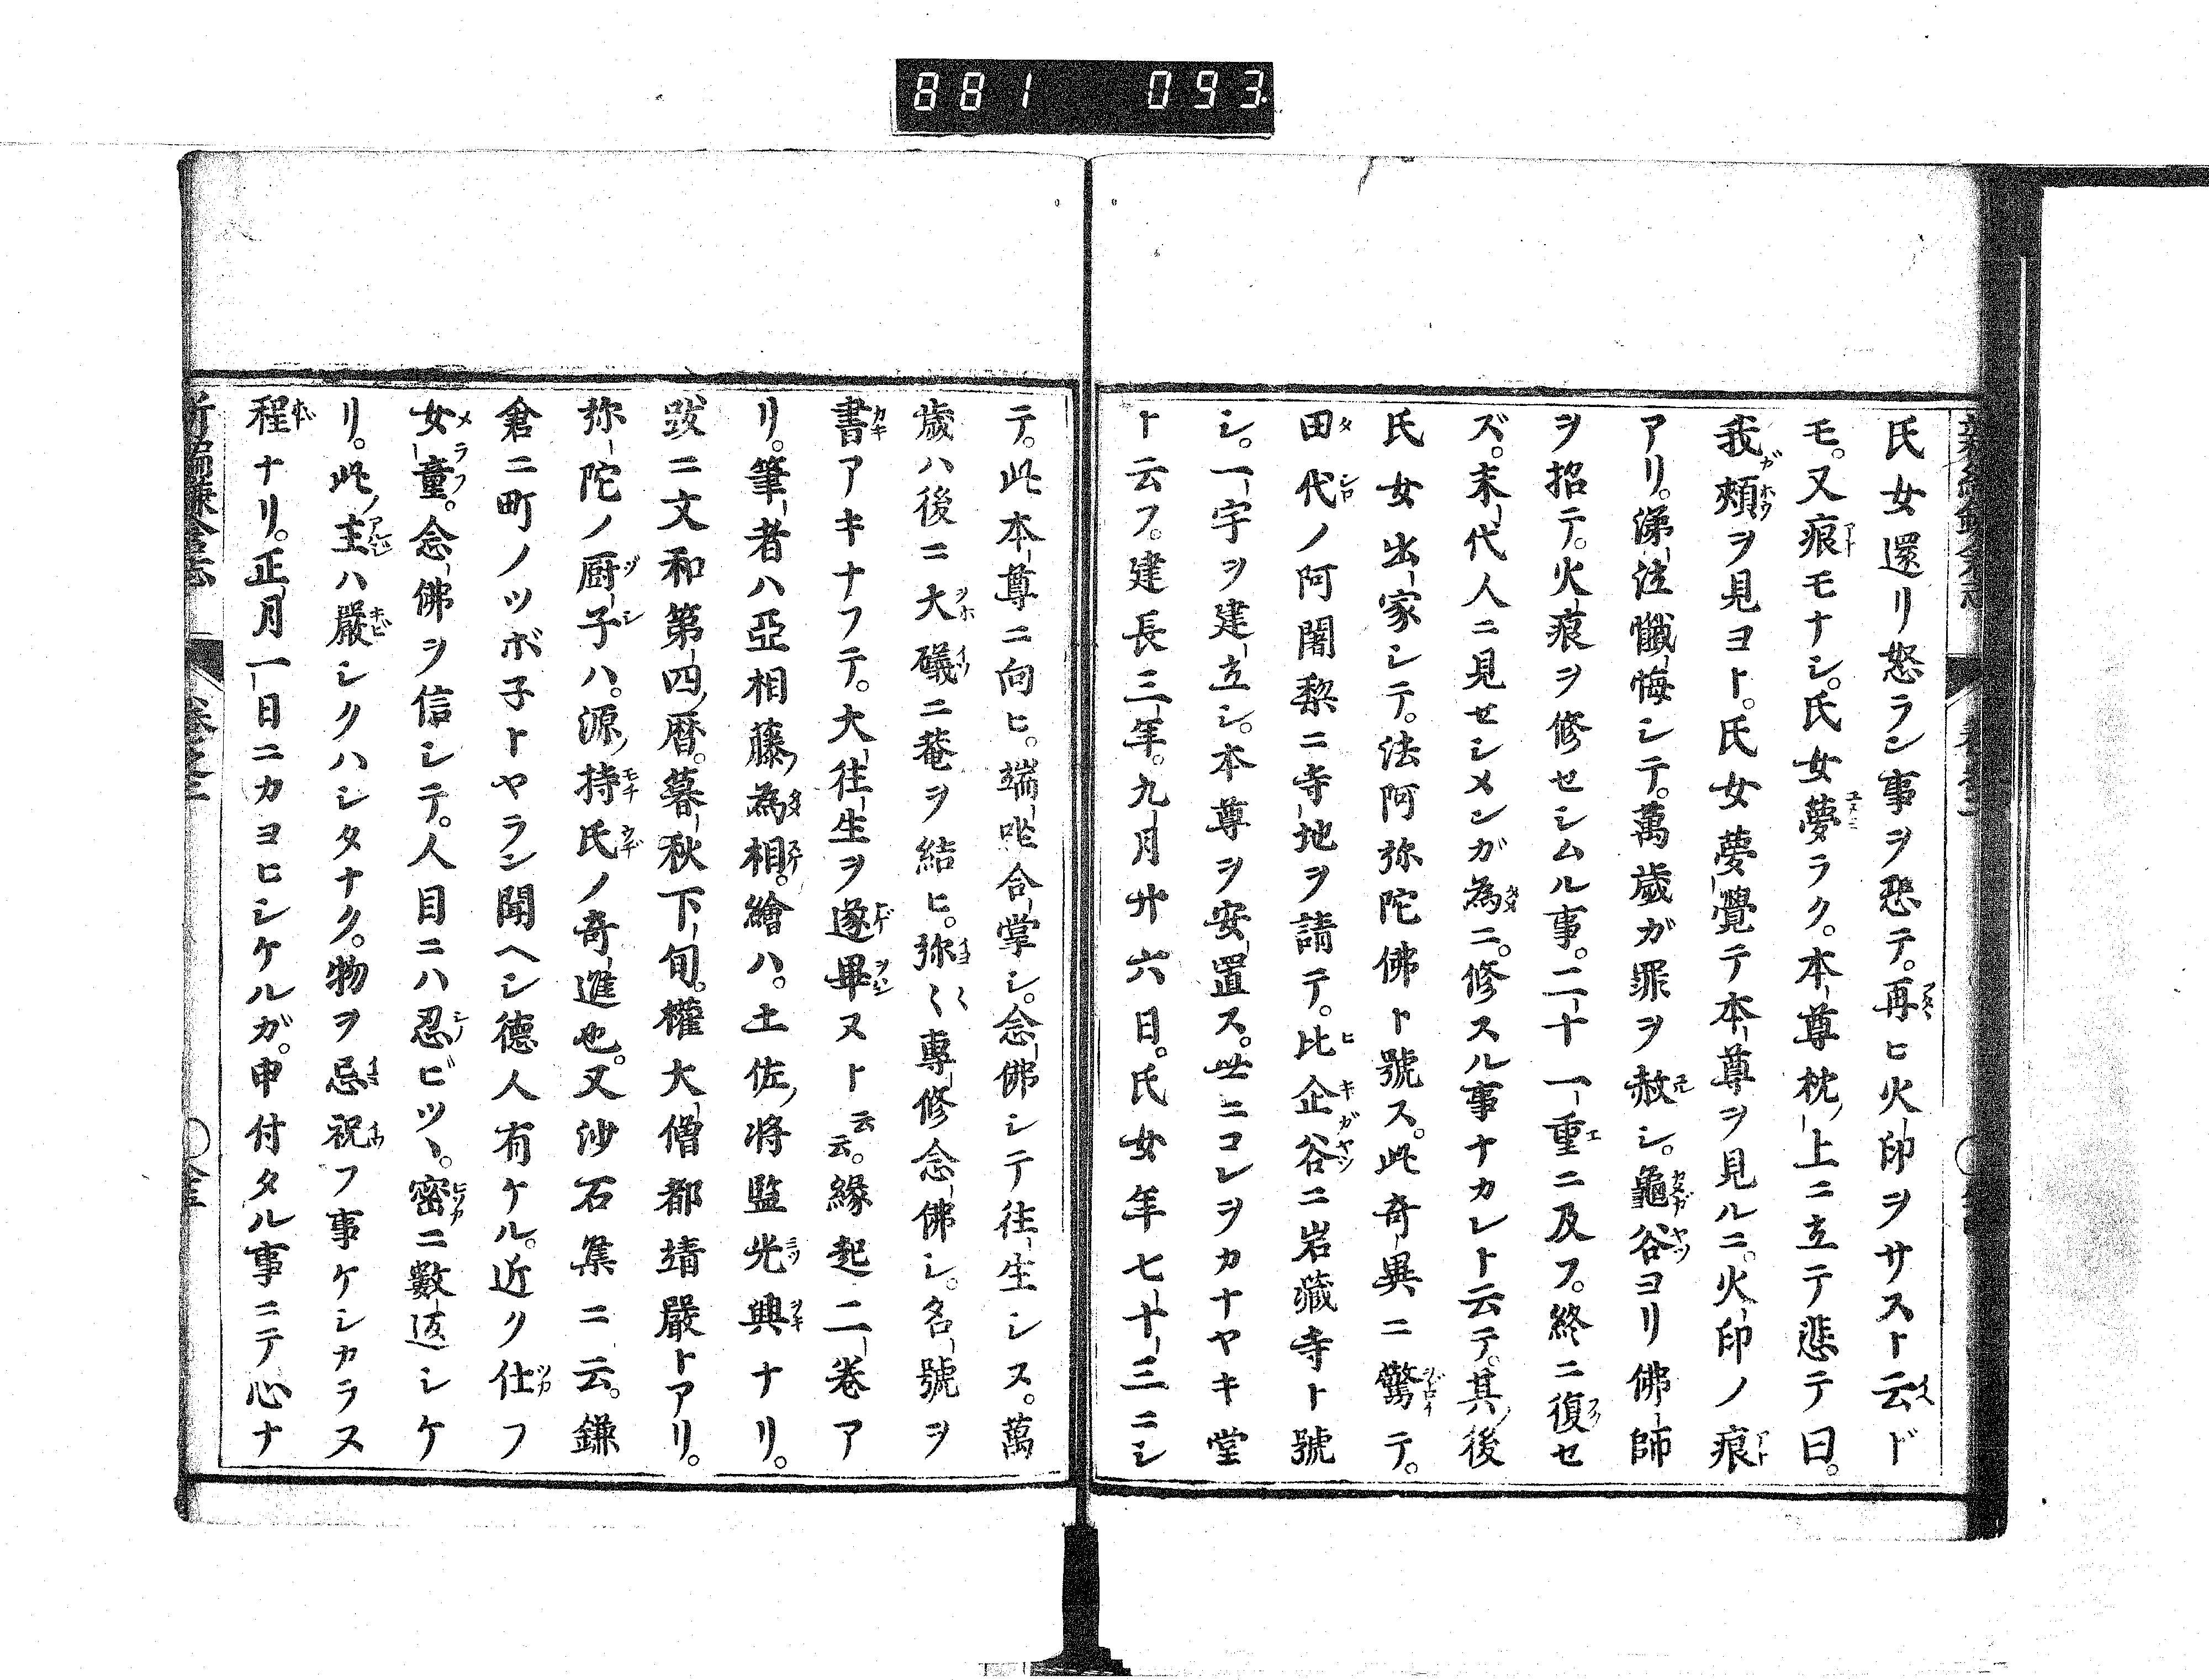 881 093
氏女還リ怒ラン事ヲ恐テ。再ヒ火印ヲサスト云ド
モ。又痕モナシ。氏女夢ラク。本尊枕ノ上ニ立テ悲テ曰。
我頰ヲ見ヨト。氏女夢覺テ本尊ヲ見ルニ。火印ノ痕
アリ。涕泣懺悔シテ。萬歲ガ罪ヲ赦シ。龜谷ヨリ佛師
ヲ招テ。火痕ヲ修セシムル事。二十一重ニ及フ。終ニ復セ
ズ。末代人ニ見セシメンガ為ニ。修スル事ナカレト云テ。其ノ後
氏女出家シテ。法阿弥陀佛ト號ス。此奇異ニ驚テ。
田代ノ阿闍梨ニ寺地ヲ請テ。比企谷ニ岩藏寺ト號
シ。一宇ヲ建立シ。本尊ヲ安置ス。世ニコレヲカナヤキ堂
ト云フ。建長三年。九月廾六日。氏女年七十三ニシ
テ。此本尊ニ向ヒ。端坐合掌シ。念佛シテ往生シス。萬
歲ハ後ニ大礒ニ菴ヲ結ヒ。弥〻專修念佛シ。名號ヲ
書アキナフテ。大往生ヲ遂畢ヌト云云。緣起二卷ア
リ。筆者ハ亞相藤ノ為相。繪ハ。土佐ノ将監光興ナリ。
跋ニ文和第四ノ暦。暮秋下旬。權大僧都靖嚴トアリ。
弥陀ノ厨子ハ。源ノ持氏ノ奇進也。又沙石集ニ云。鎌
倉ニ町ノツボ子トヤラン聞ヘシ德人有ケル。近ク仕フ
女童。念佛ヲ信シテ。人目ニハ忍ビツヽ。密ニ數返シケ
リ。此ノ主ハ嚴シクハシタナク。物ヲ忌祝フ事ケシカラス
程ナリ。正月一日ニカヨヒシケルガ。申付タル事ニテ心ナ